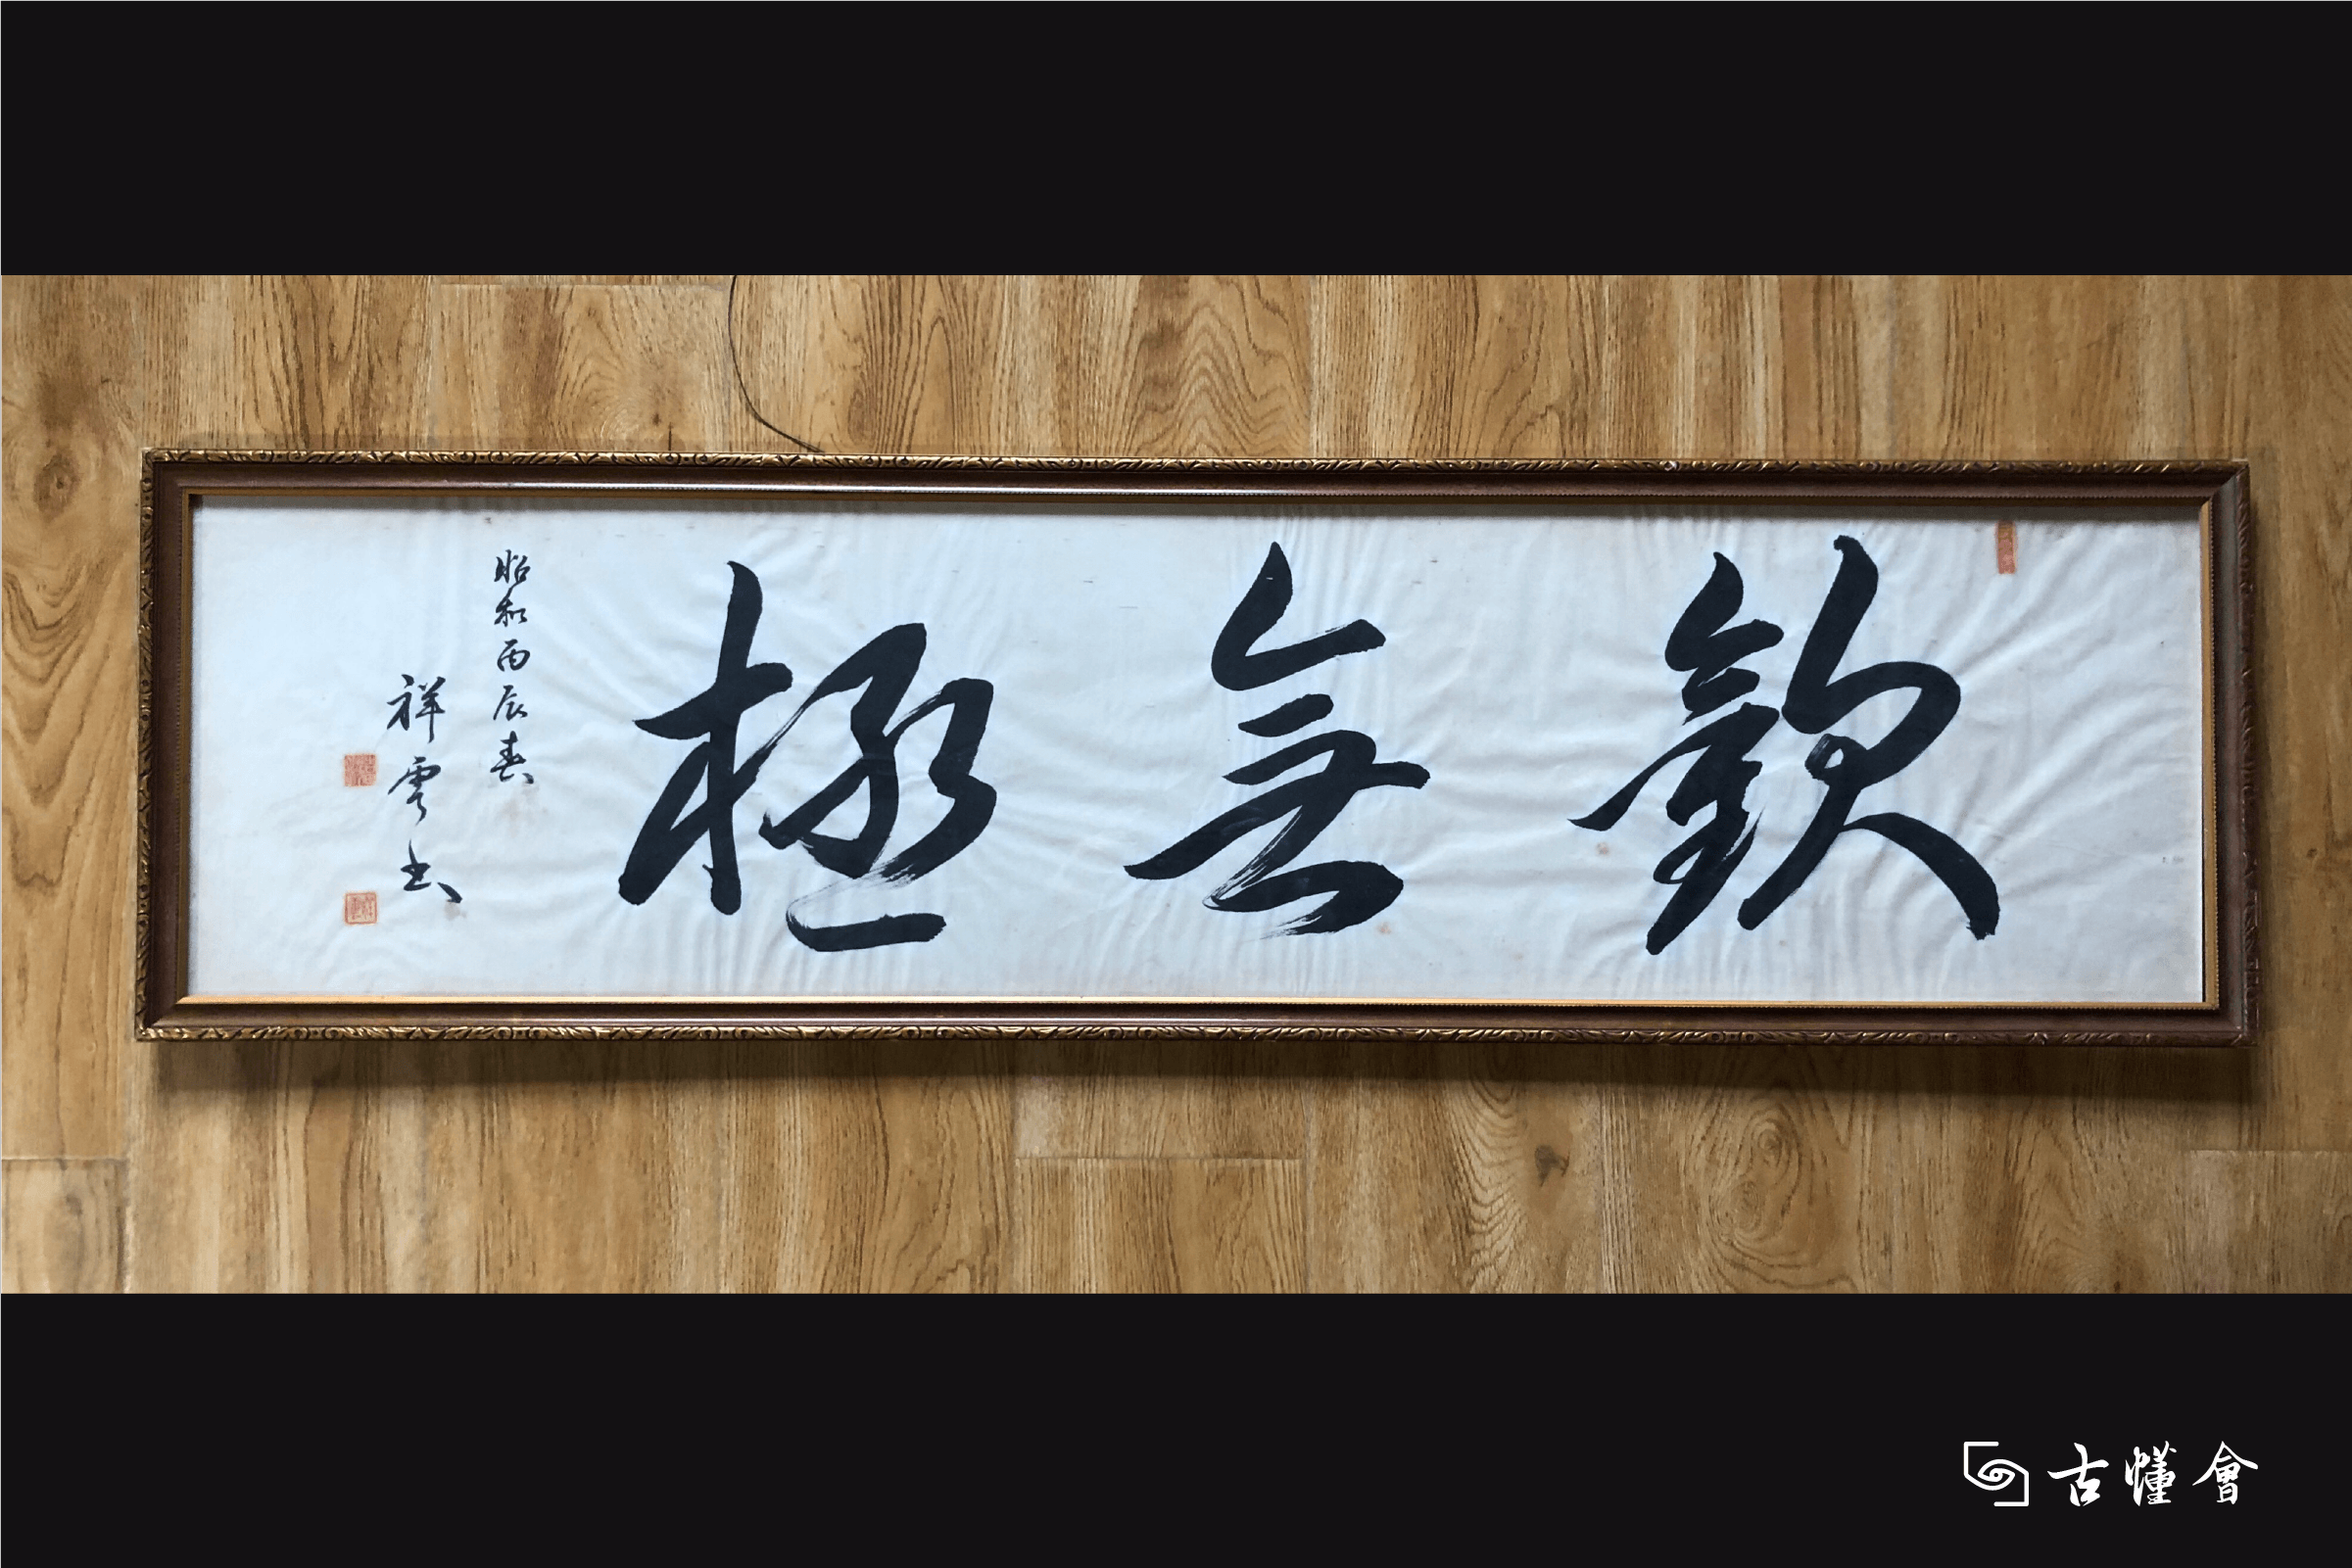 歡無極
昭和丙辰春
祥雲書
古懂會